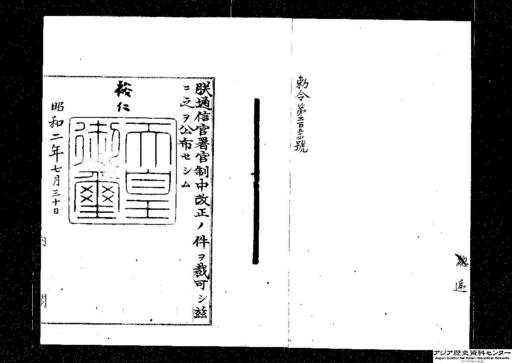 勅令第二百三十號
朕逓信官署官制中改正ノ件ヲ裁可シ茲
ニ之ヲ公布セシム
裕仁
天皇
御璽
昭和二年七月三十日
内閣
逓
アジア歴史資料センター
Japan Center for Asian Historical Records